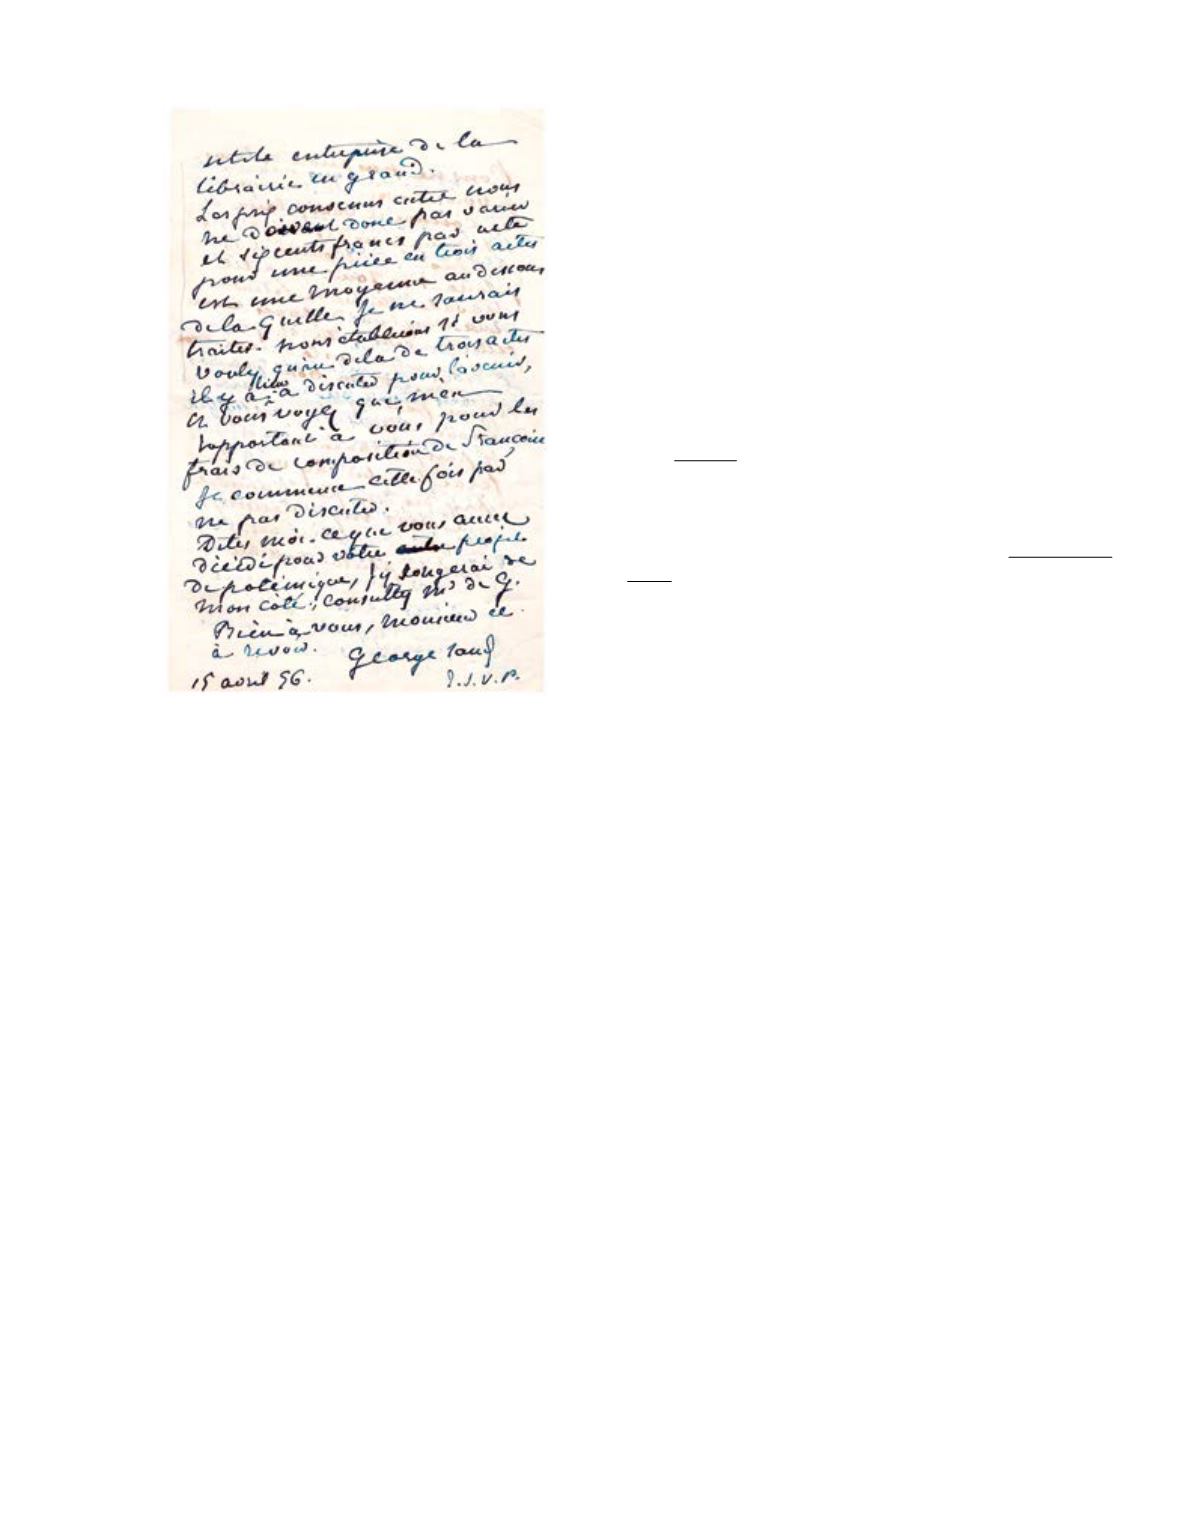 utile entreprise de la
librairie en grand.
Les prix convenus entre nous
ne doivent donc pas varier
et six cents francs par acte
pour une pièce en trois actes
est une moyenne au dessous
de la quelle je ne saurais
traiter. nous établirons si vous
voulez qu'au delà de trois actes
il y a lieu à discuter pour l'avenir,
et vous voyez que, m'en
rapportant à vous pour les
frais de composition de Françoise
je commence cette fois par
ne pas discuter.
Dites moi ce que vous aurez
décidé pour votre projet
de polémique, j'y songerai de
mon côté; consultez Mr de G.
Bien à vous, monsieur et
à revoir. George Sand
15 avril 56. t.s.v.p.